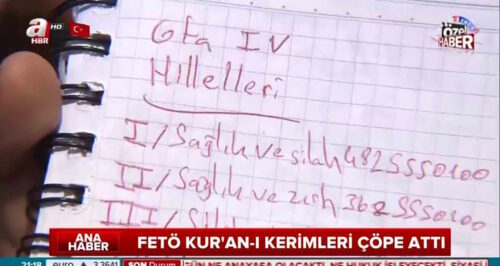 a HD
HBR
ÖZEL
HABER
Gta IV
Hilleleri
I/Sağlık ve silah 482 555 0100
II/Sağlık ve zırh 362 555 0100
ANA
HABER
FETÖ KUR'AN-I KERİMLERİ ÇÖPE ATTI
21:18 euro 3,3641 SON Durum NE ANAYASA OLACAKTI, NE HUKUK İŞLEYECEKTİ, SİYASİ